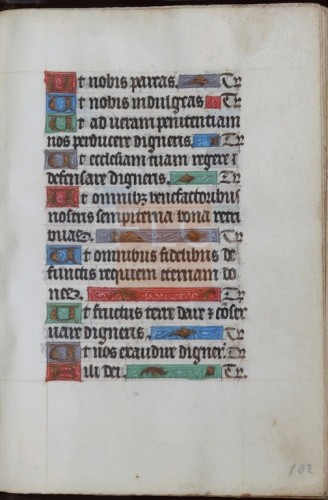 Ut nobis parcas. Te
Ut nobis indulgeas Te
Ut ad veram penitentiam
nos perducere digneris. Te
Ut ecclesiam tuam regere ⁊
defensare digneris. Te
Ut omnibꝫ benefactoribus
nostris sempiterna bona retri
buas. Te
Ut omnibus fidelibus de
functis requiem eternam do
nes. Te
Ut fructus terre dare ⁊ cõser
uare digneris. Te
Ut nos exaudire digner. Te
Fili dei. Te
102